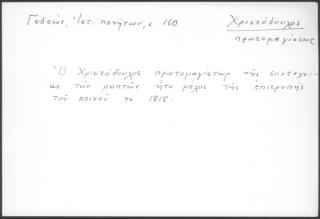 Γεδεών, Ἱστ. πενήτων, σ 160
Χριστόδουλος
πρωτομαγίστωρ
Ὁ Χριστόδουλος πρωτομαγίστωρ τῆς συντεχνί-
ας τῶν ραπτῶν ἦτο μέλος τῆς ἐπιτροπῆς
τοῦ κοινοῦ τό 1815.